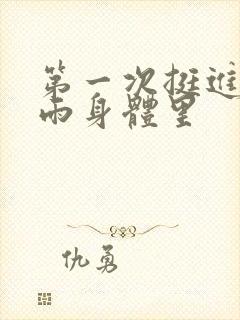 第一次挺進
雨身體里
仇勇